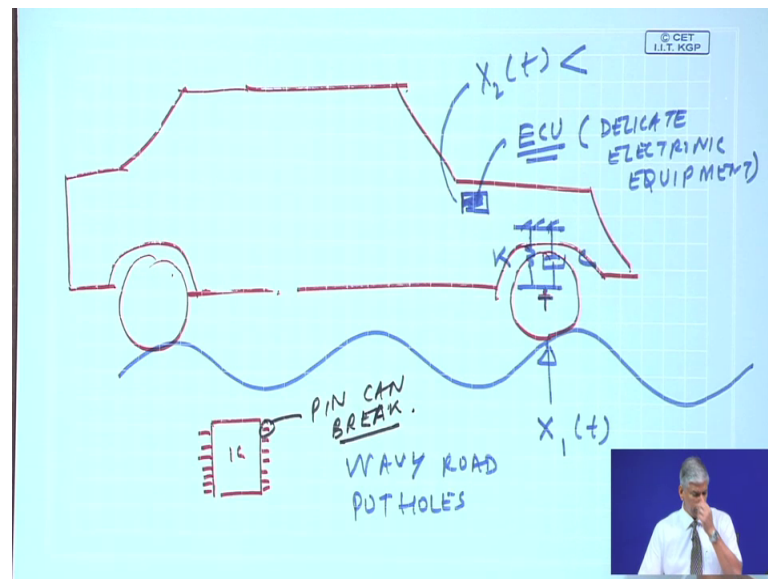 © CET
I.I.T. KGP
X₂(t) <
ECU (DELICATE
ELECTRINIC
EQUIPMENT)
K
C
PIN CAN
BREAK.
IC
X₁(t)
WAVY ROAD
POTHOLES